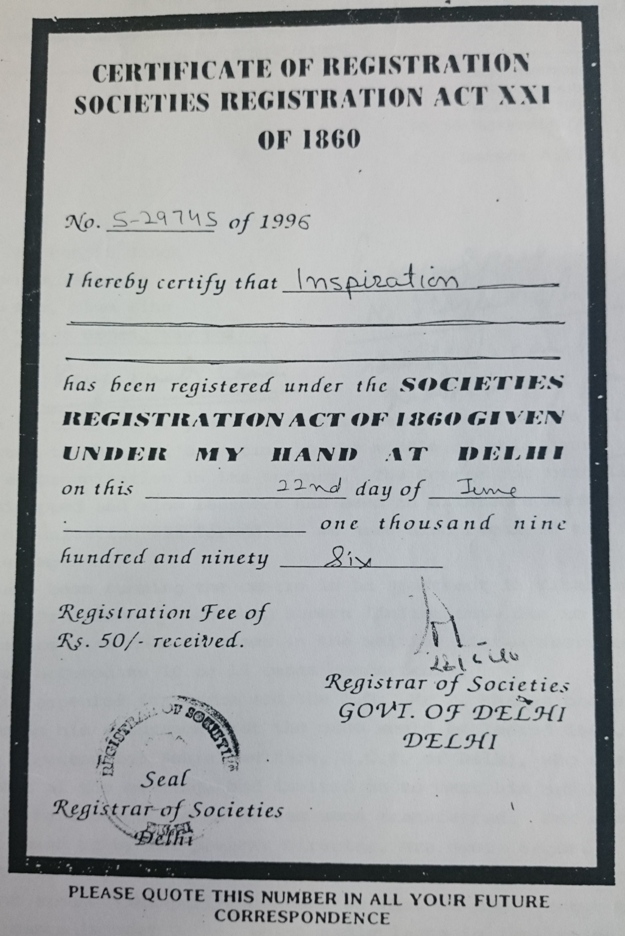 CERTIFICATE OF REGISTRATION
SOCIETIES REGISTRATION ACT XXI
OF 1860
No. S-29745 of 1996
I hereby certify that Inspiration
has been registered under the SOCIETIES
REGISTRATION ACT OF 1860 GIVEN
UNDER MY HAND AT DELHI
on this 22nd day of June
one thousand nine
hundred and ninety Six
Registration Fee of
Rs. 50/- received.
Registrar of Societies
GOVT. OF DELHI
DELHI
REGISTRAR OF SOCIETIES
Seal
Registrar of Societies
Delhi
PLEASE QUOTE THIS NUMBER IN ALL YOUR FUTURE
CORRESPONDENCE